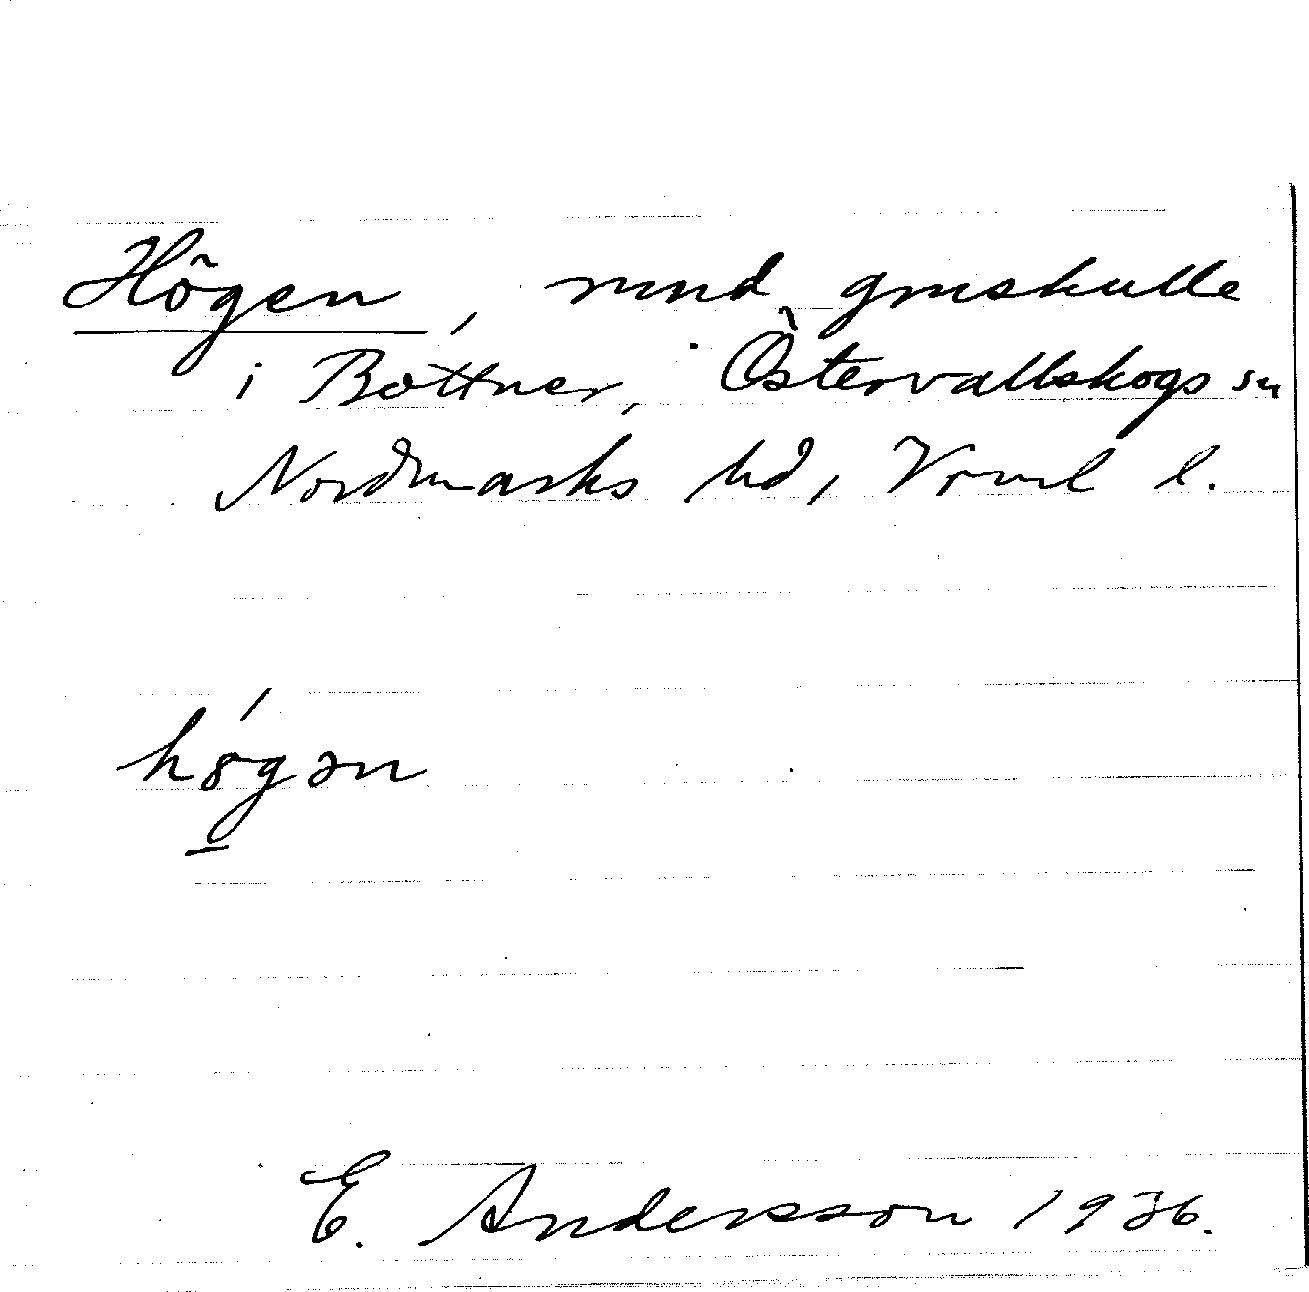 Högen, rund gruskulle
i Bottner, Östervallskogs sn
Nordmarks hd, Värml l.
høgən
E. Andersson 1936.